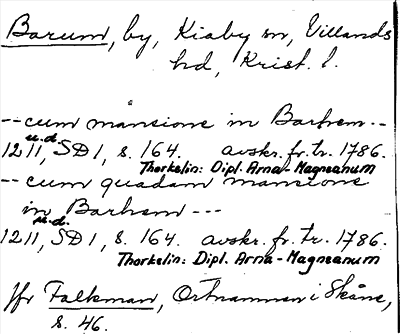 Barum, by, Kiaby sn, Villands
hd, Krist. l.
-- cum mansione in Barhem --
u.d.
1211, SD 1, s. 164. avskr. fr. tr. 1786.
Thorkelin: Dipl. Arna-Magneanum
-- cum quadam mansione
in Barhem ---
u.d.
1211, SD 1, s. 164. avskr. fr. tr. 1786.
Thorkelin: Dipl. Arna-Magneanum
Jfr Falkman, Ortnamnen i Skåne,
s. 46.